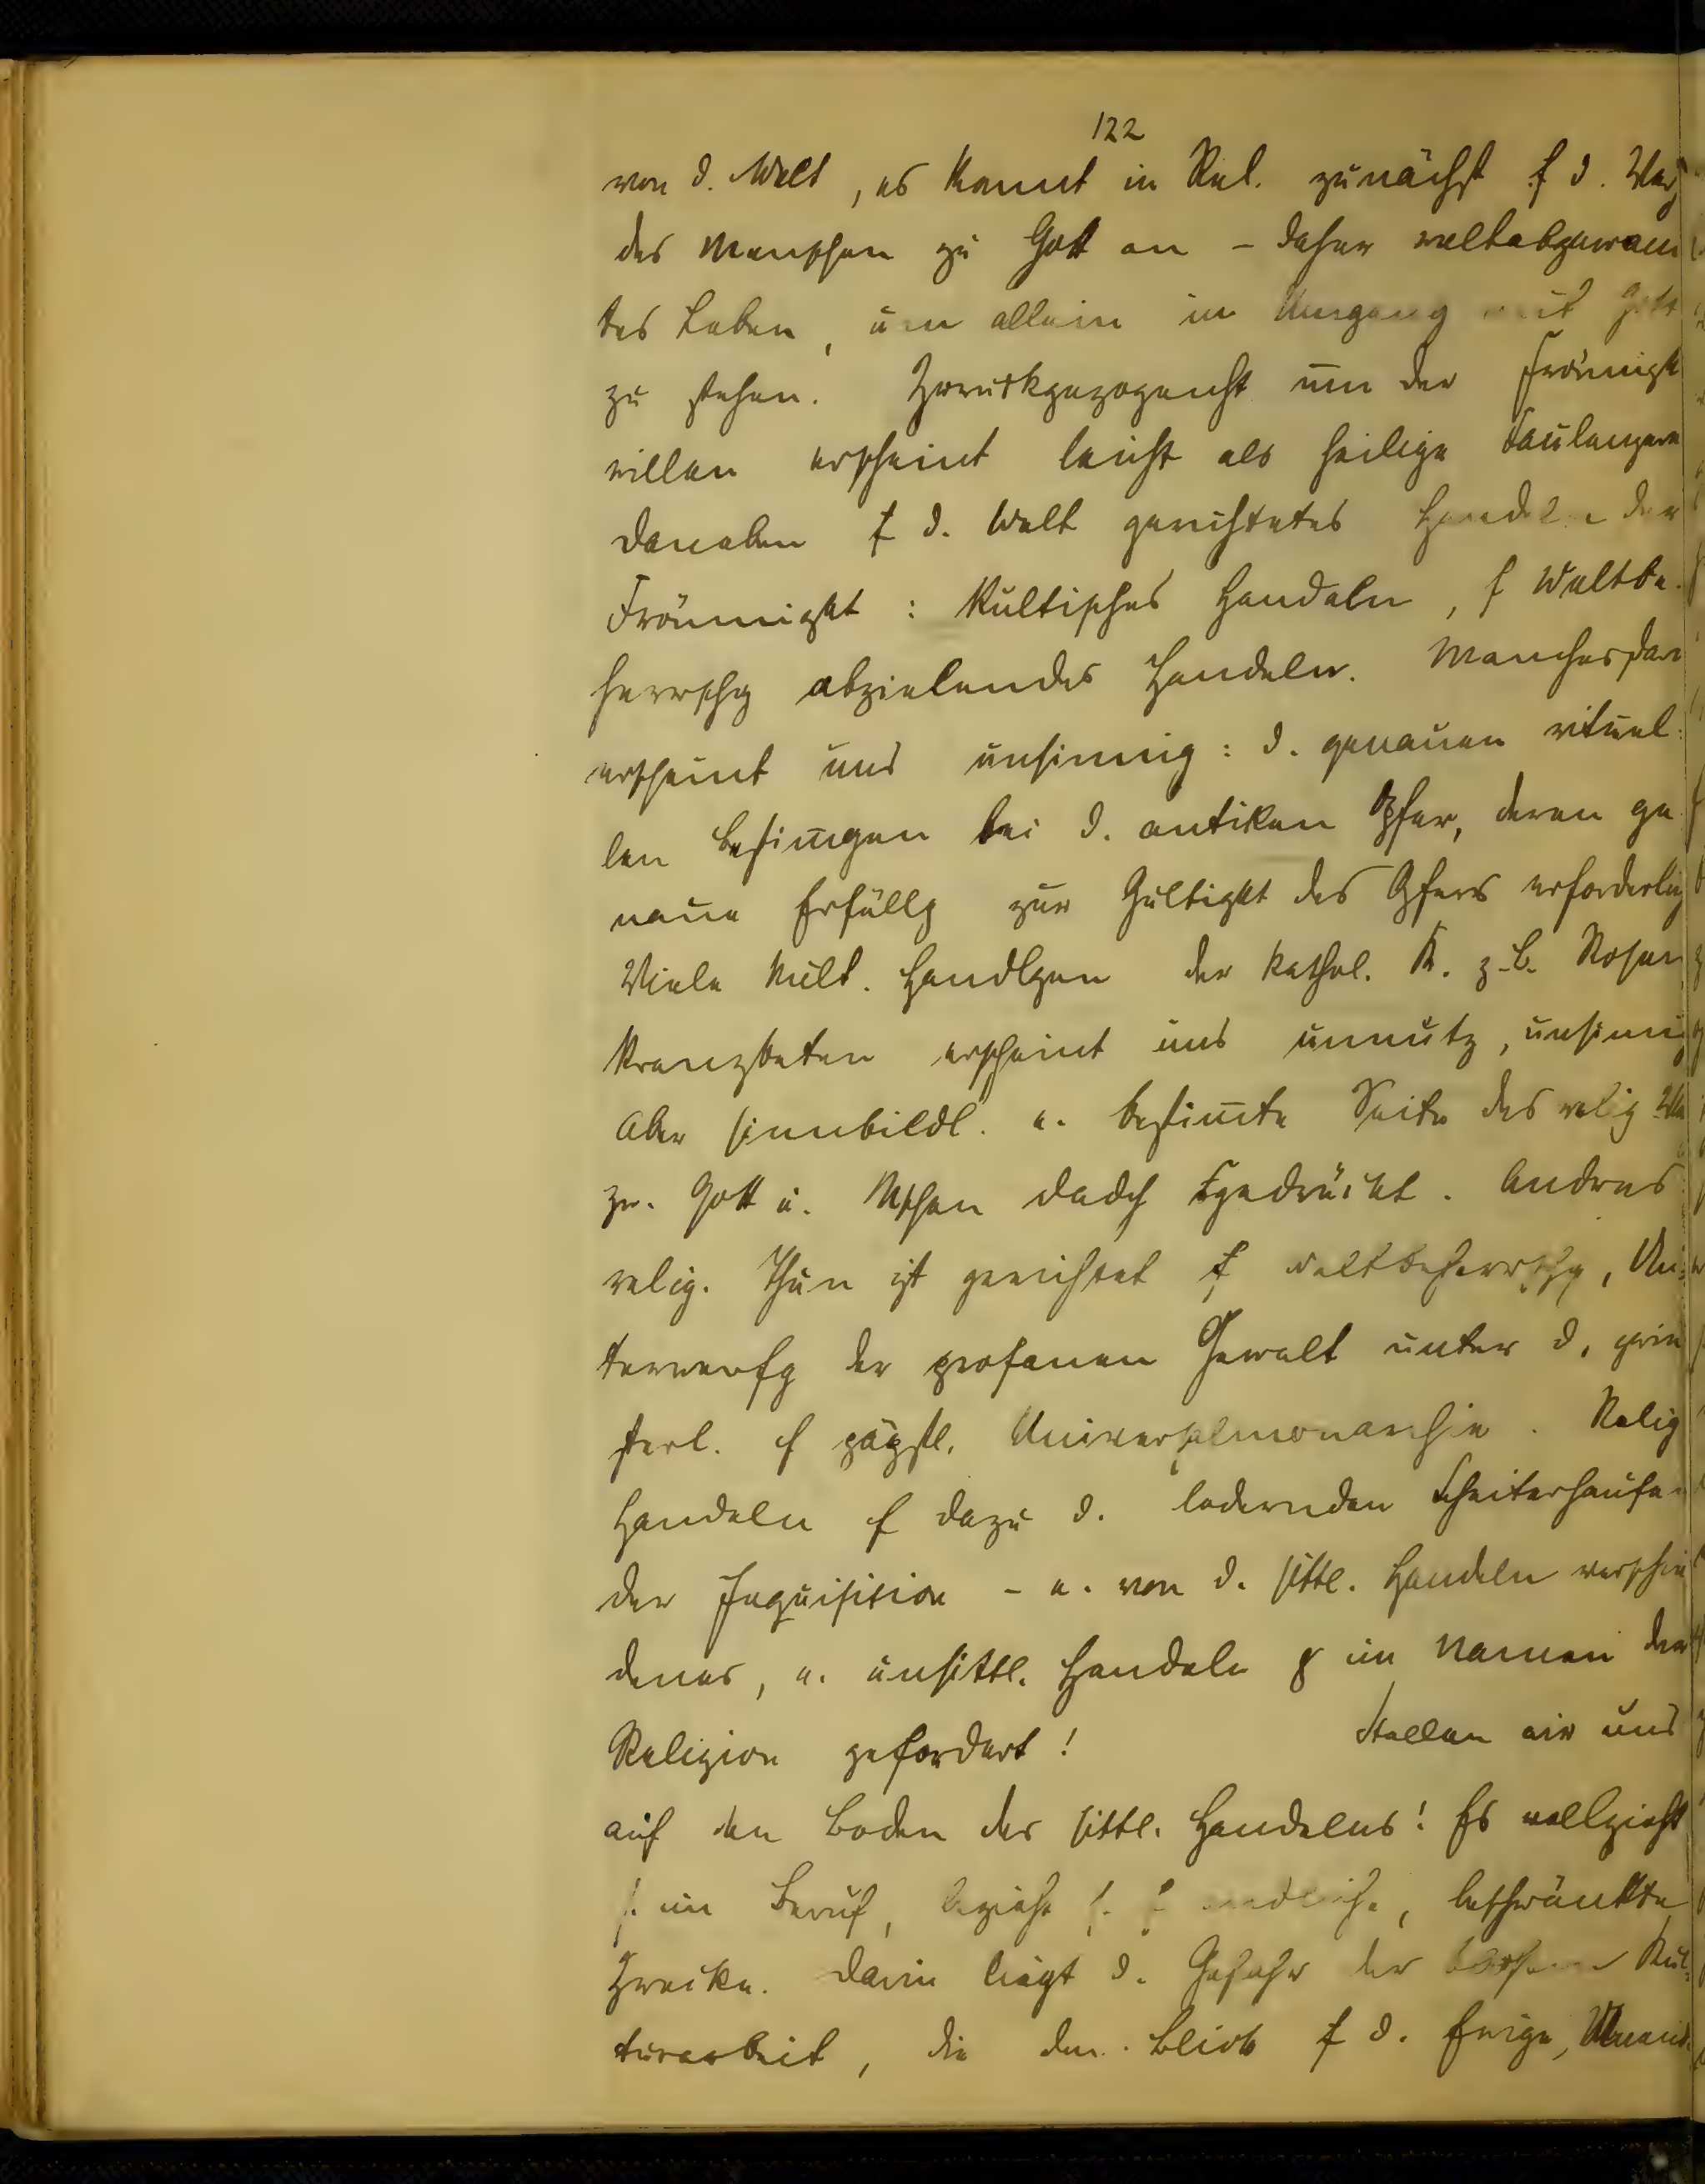 122
von d. Welt, es kommt in Rel. zunächst f d. Ver
des Menschen zu Gott an – daher weltabgewan
tes Leben, um allein im Umgang mit Gott
zu stehen. Zurückgezogenht um der Frömmigk
willen erscheint leicht als heilige Faulenzere
Daneben f d. Welt gerichtetes Handeln der
Frömmigkt : Kultisches Handeln, f Weltbe-
herrschg abzielendes Handeln. Manches dar
erscheint uns unsinnig : d. genauen rituel-
len Bestimgen bei d. antiken Opfer, deren ge
naue Erfüllg zur Gültigkt des Opfers erforderlich
Viele kult. Handlgen der kathol. K. z. B. Rosen
kranzbeten erscheint uns unnütz, unsinnig
Aber sinnbildl. e. bestimte Seite des relig Ver
zw. Gott u. Mschen dadch sgedrückt. Andres
relig. Thun ist gerichtet f Weltbeherrschg, Un-
terwerfg der profanen Gewalt unter d. prie
sterl. f päpstl. Universalmonarchie. Relig
Handeln f dazu d. lodernden Scheiterhaufen
der Inquisition – e. von d. sittl. Handeln verschie
denes, e. unsittl. Handeln im Namen der
Religion gefordert! Stellen wir uns
auf den Boden des sittl. Handelns! Es vollzieht
s. im Beruf, bezieht s. f endliche, beschränkte
Zwecke. Darin liegt d. Gefahr der Kul-
turarbeit, die den Blick f d. Ewige,